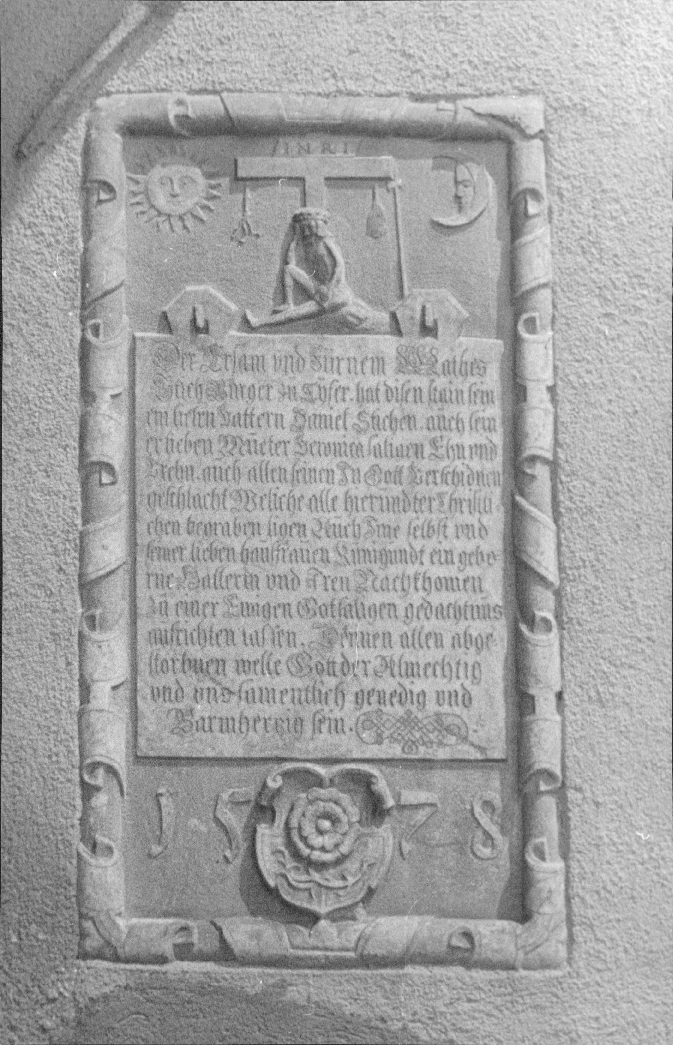 INRI
Der Ersam vnd Fürnem Mathes
Burger zu hat disen stain sein
em liebn Vattern Daniel auch sein
er lieben Mueter Veronica saligen Ehn vnd
auch allen seinen In Gott Verschidnen
geschlächt Weliche alle hierundter Christli
chen begraben ligen Auch Ime selbst vnd
seiner lieben haussfrauen Kunigundt ein gebo
rne Hallerin vnd Iren Nachkhomen
zu einer Ewigen Gottsaligen gedachtnus
aufrichten lassen. Denen allen abge
storbnen welle Gott der Almechtig
vnd vns samentlich genedig vnd
Barmhertzig sein.
1578